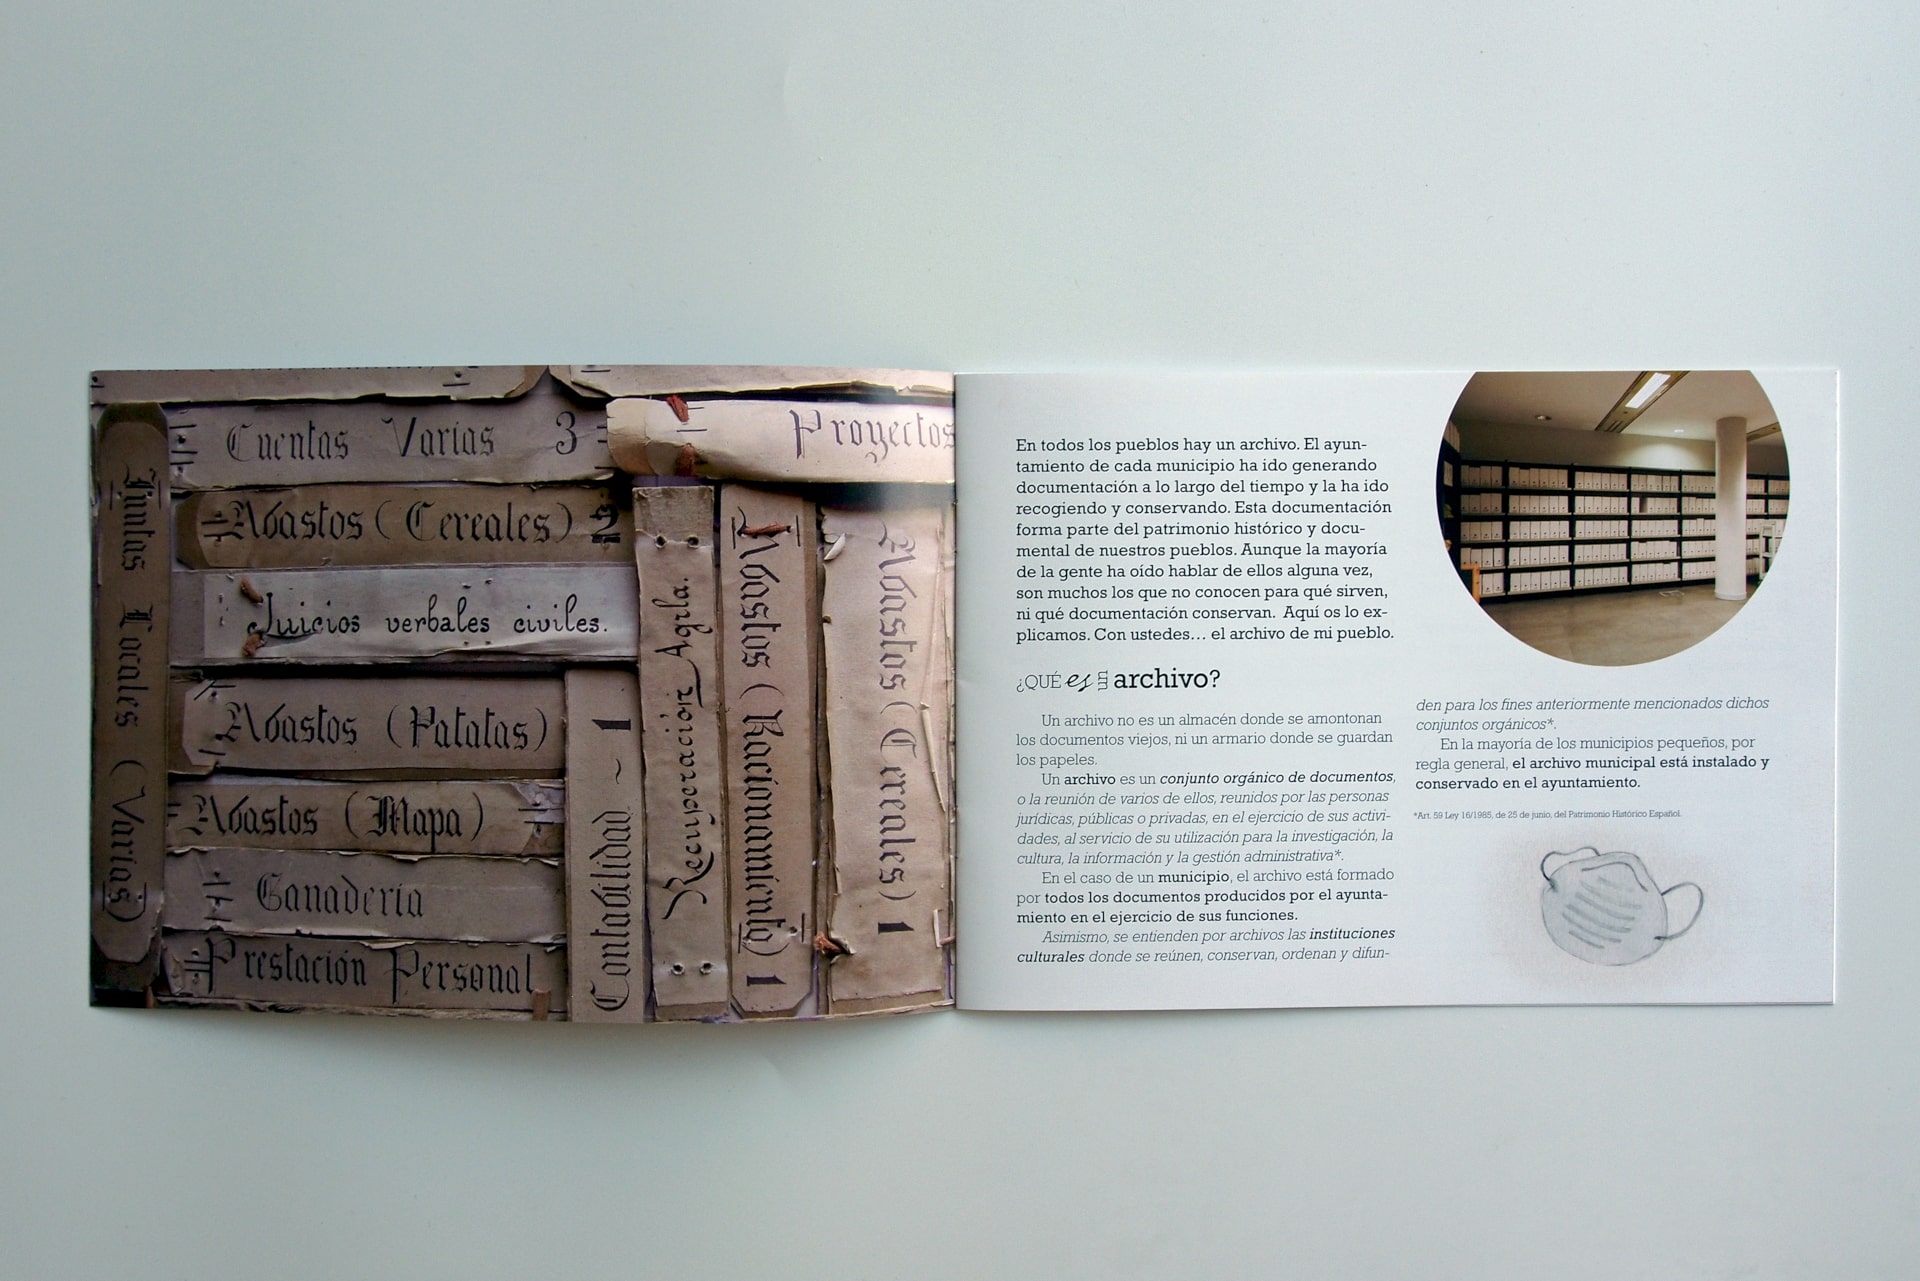 Cuentas Varias 3
Proyectos
Juntas Locales (Varias)
Abastos (Cereales) 2
Juicios verbales civiles.
Abastos (Patatas)
Abastos (Mapa)
Ganaderia
Prestación Personal
Contabilidad ~ 1
Recuperación Agla.
Abastos (Racionamiento) 1
Abastos (Cereales) 1
En todos los pueblos hay un archivo. El ayun-
tamiento de cada municipio ha ido generando
documentación a lo largo del tiempo y la ha ido
recogiendo y conservando. Esta documentación
forma parte del patrimonio histórico y docu-
mental de nuestros pueblos. Aunque la mayoría
de la gente ha oído hablar de ellos alguna vez,
son muchos los que no conocen para qué sirven,
ni qué documentación conservan. Aquí os lo ex-
plicamos. Con ustedes... el archivo de mi pueblo.
¿QUÉ es un archivo?
Un archivo no es un almacén donde se amontonan
los documentos viejos, ni un armario donde se guardan
los papeles.
Un archivo es un conjunto orgánico de documentos,
o la reunión de varios de ellos, reunidos por las personas
jurídicas, públicas o privadas, en el ejercicio de sus activi-
dades, al servicio de su utilización para la investigación, la
cultura, la información y la gestión administrativa*.
En el caso de un municipio, el archivo está formado
por todos los documentos producidos por el ayunta-
miento en el ejercicio de sus funciones.
Asimismo, se entienden por archivos las instituciones
culturales donde se reúnen, conservan, ordenan y difun-
den para los fines anteriormente mencionados dichos
conjuntos orgánicos*.
En la mayoría de los municipios pequeños, por
regla general, el archivo municipal está instalado y
conservado en el ayuntamiento.
*Art. 59 Ley 16/1985, de 25 de junio, del Patrimonio Histórico Español.